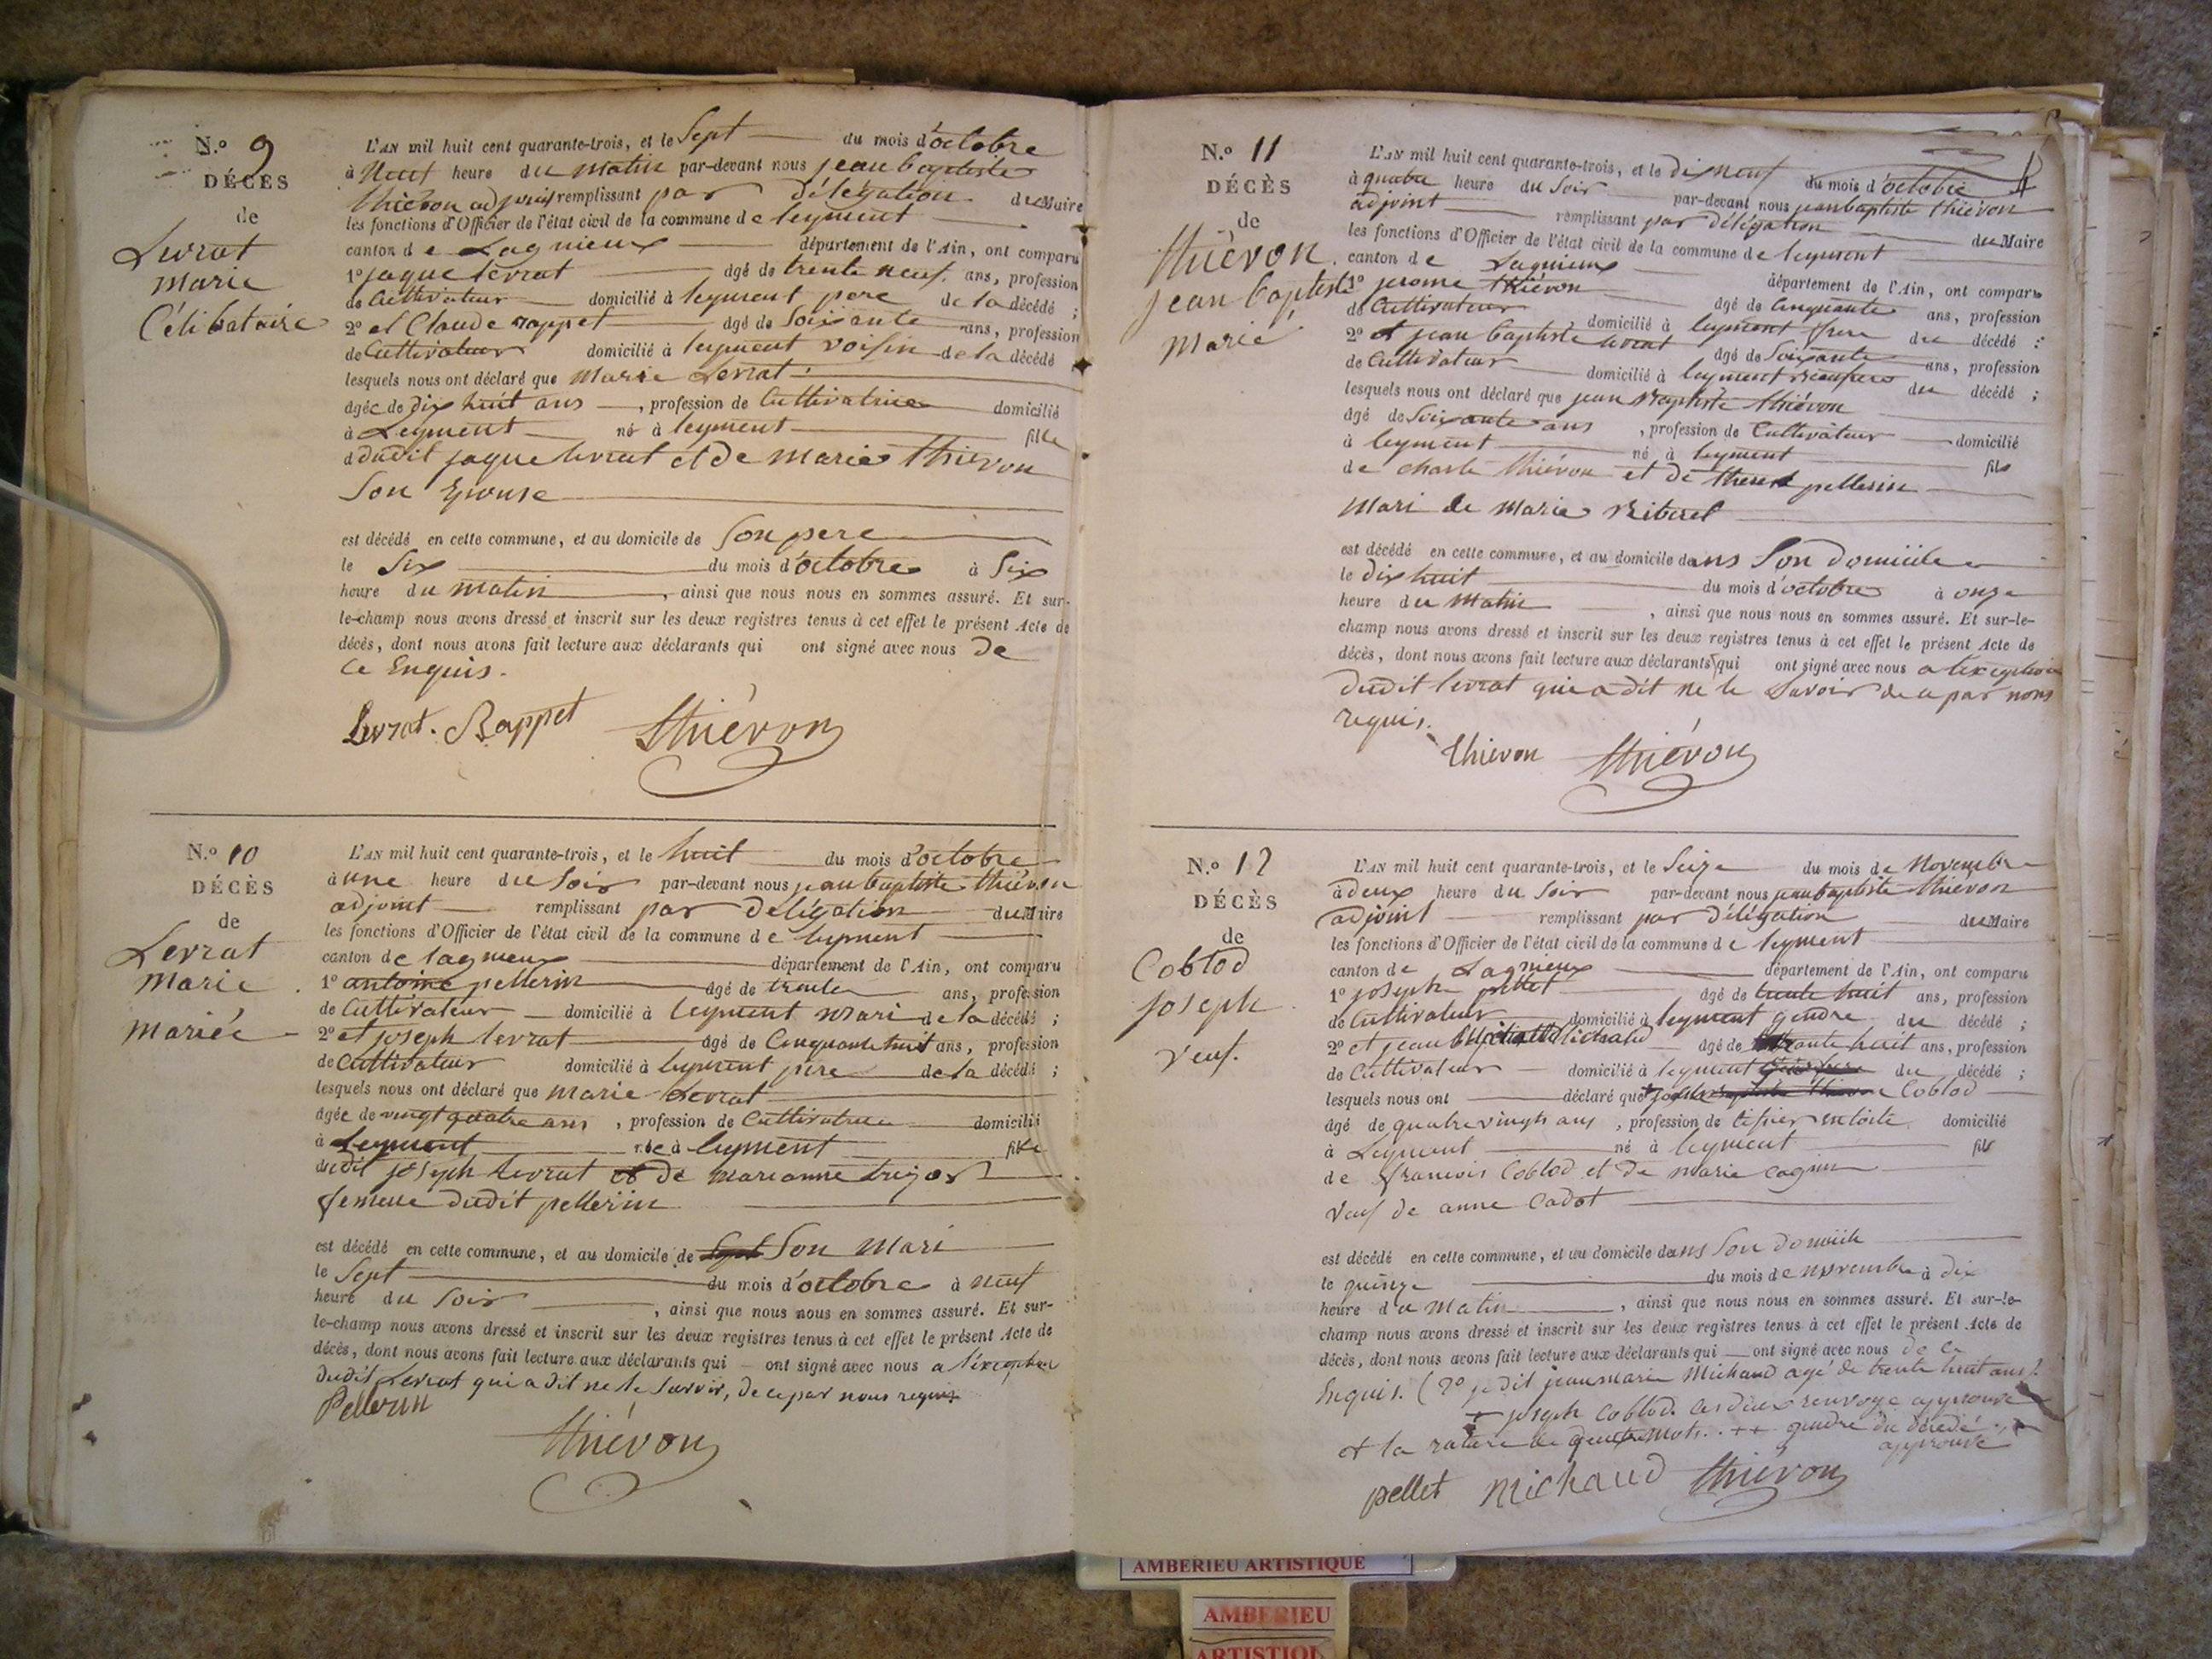 N.º 9
DÉCÈS
de
Levrat
Marie
Célibataire
L'AN mil huit cent quarante-trois, et le Sept du mois d'octobre
à Neuf heure du matin par-devant nous jean baptiste
thiévon adjoint remplissant par délégation du Maire
les fonctions d'Officier de l'état civil de la commune de leyment
canton de Lagnieux département de l'Ain, ont comparu
1º jaque levrat âgé de trente neuf ans, profession
de Cultivateur domicilié à leyment pere de la décédé ;
2º et Claude rappet âgé de Soixante ans, profession
de Cultivateur domicilié à leyment voisin de la décédé
lesquels nous ont déclaré que Marie Levrat
âgée de dix huit ans, profession de Cultivatrice domicilié
à Leyment né à leyment fille
dudit jaque levrat et de marie thievon
Son Epouse
est décédé en cette commune, et au domicile de Son pere
le Six du mois d'octobre à Six
heure du matin, ainsi que nous nous en sommes assuré. Et sur-
le-champ nous avons dressé et inscrit sur les deux registres tenus à cet effet le présent Acte de
décès, dont nous avons fait lecture aux déclarants qui ont signé avec nous de
ce Enquis.
Levrat. Rappet Thiévon
N.º 10
DÉCÈS
de
Levrat
Marie
mariée
L'AN mil huit cent quarante-trois, et le huit du mois d'octobre
à une heure du Soir par-devant nous jean baptiste thiévon
adjoint remplissant par délégation du Maire
les fonctions d'Officier de l'état civil de la commune de leyment
canton de lagnieux département de l'Ain, ont comparu
1º antoine pellerin âgé de trente ans, profession
de Cultivateur domicilié à leyment Mari de la décédé ;
2º et joseph levrat âgé de Cinquante huit ans, profession
de Cultivateur domicilié à leyment pere de la décédé ;
lesquels nous ont déclaré que Marie Levrat
âgée de vingt quatre ans, profession de Cultivatrice domicilié
à Leyment née à leyment fille
dudit joseph levrat et de marianne
femme dudit pellerin
est décédé en cette commune, et au domicile de Son Mari
le Sept du mois d'octobre à neuf
heure du Soir, ainsi que nous nous en sommes assuré. Et sur-
le-champ nous avons dressé et inscrit sur les deux registres tenus à cet effet le présent Acte de
décès, dont nous avons fait lecture aux déclarants qui ont signé avec nous a l'exception
dudit Levrat qui a dit ne le Savoir, de ce par nous requis
Pellerin
Thiévon
N.º 11
DÉCÈS
de
Thiévon
jean baptiste
Marié
L'AN mil huit cent quarante-trois, et le dix neuf du mois d'octobre
à quatre heure du Soir par-devant nous jean baptiste thiévon
adjoint remplissant par délégation du Maire
les fonctions d'Officier de l'état civil de la commune de leyment
canton de Lagnieux département de l'Ain, ont comparu
1º jerome thiévon âgé de Cinquante ans, profession
de Cultivateur domicilié à leyment frere du décédé ;
2º et jean baptiste levrat âgé de Soixante ans, profession
de Cultivateur domicilié à leyment du décédé ;
lesquels nous ont déclaré que jean Baptiste thiévon
âgé de Soixante ans, profession de Cultivateur domicilié
à leyment né à leyment fils
de charle thiévon et de pellerin
Mari de Marie
est décédé en cette commune, et au domicile dans Son domicile
le dix huit du mois d'octobre à onze
heure du Matin, ainsi que nous nous en sommes assuré. Et sur-le-
champ nous avons dressé et inscrit sur les deux registres tenus à cet effet le présent Acte de
décès, dont nous avons fait lecture aux déclarants qui ont signé avec nous a l'exception
dudit levrat qui a dit ne le Savoir de ce par nous
requis.
Thievon Thiévon
N.º 12
DÉCÈS
de
Coblod
joseph
veuf.
L'AN mil huit cent quarante-trois, et le Seize du mois de Novembre
à deux heure du Soir par-devant nous jean baptiste thiévon
adjoint remplissant par délégation du Maire
les fonctions d'Officier de l'état civil de la commune de leyment
canton de Lagnieux département de l'Ain, ont comparu
1º joseph pellet âgé de trente huit ans, profession
de Cultivateur domicilié à leyment gendre du décédé ;
2º et jean Michaud âgé de huit ans, profession
de Cultivateur domicilié à leyment du décédé ;
lesquels nous ont déclaré que Coblod
âgé de quatre vingts ans, profession de tissier en toile domicilié
à Leyment né à leyment fils
de françois Coblod et de marie
veuf de anne Cadot
est décédé en cette commune, et au domicile dans Son domicile
le quinze du mois de novembre à dix
heure du Matin, ainsi que nous nous en sommes assuré. Et sur-le-
champ nous avons dressé et inscrit sur les deux registres tenus à cet effet le présent Acte de
décès, dont nous avons fait lecture aux déclarants qui ont signé avec nous de ce
Enquis. (2º je dit jean marie Michaud agé de trente huit ans).
+ joseph Coblod. ces deux renvoye approuvé
et la rature de mots. ++ gendre du décédé
approuvé
pellet Michaud Thiévon
AMBERIEU ARTISTIQUE
AMBERIEU
ARTISTIQU